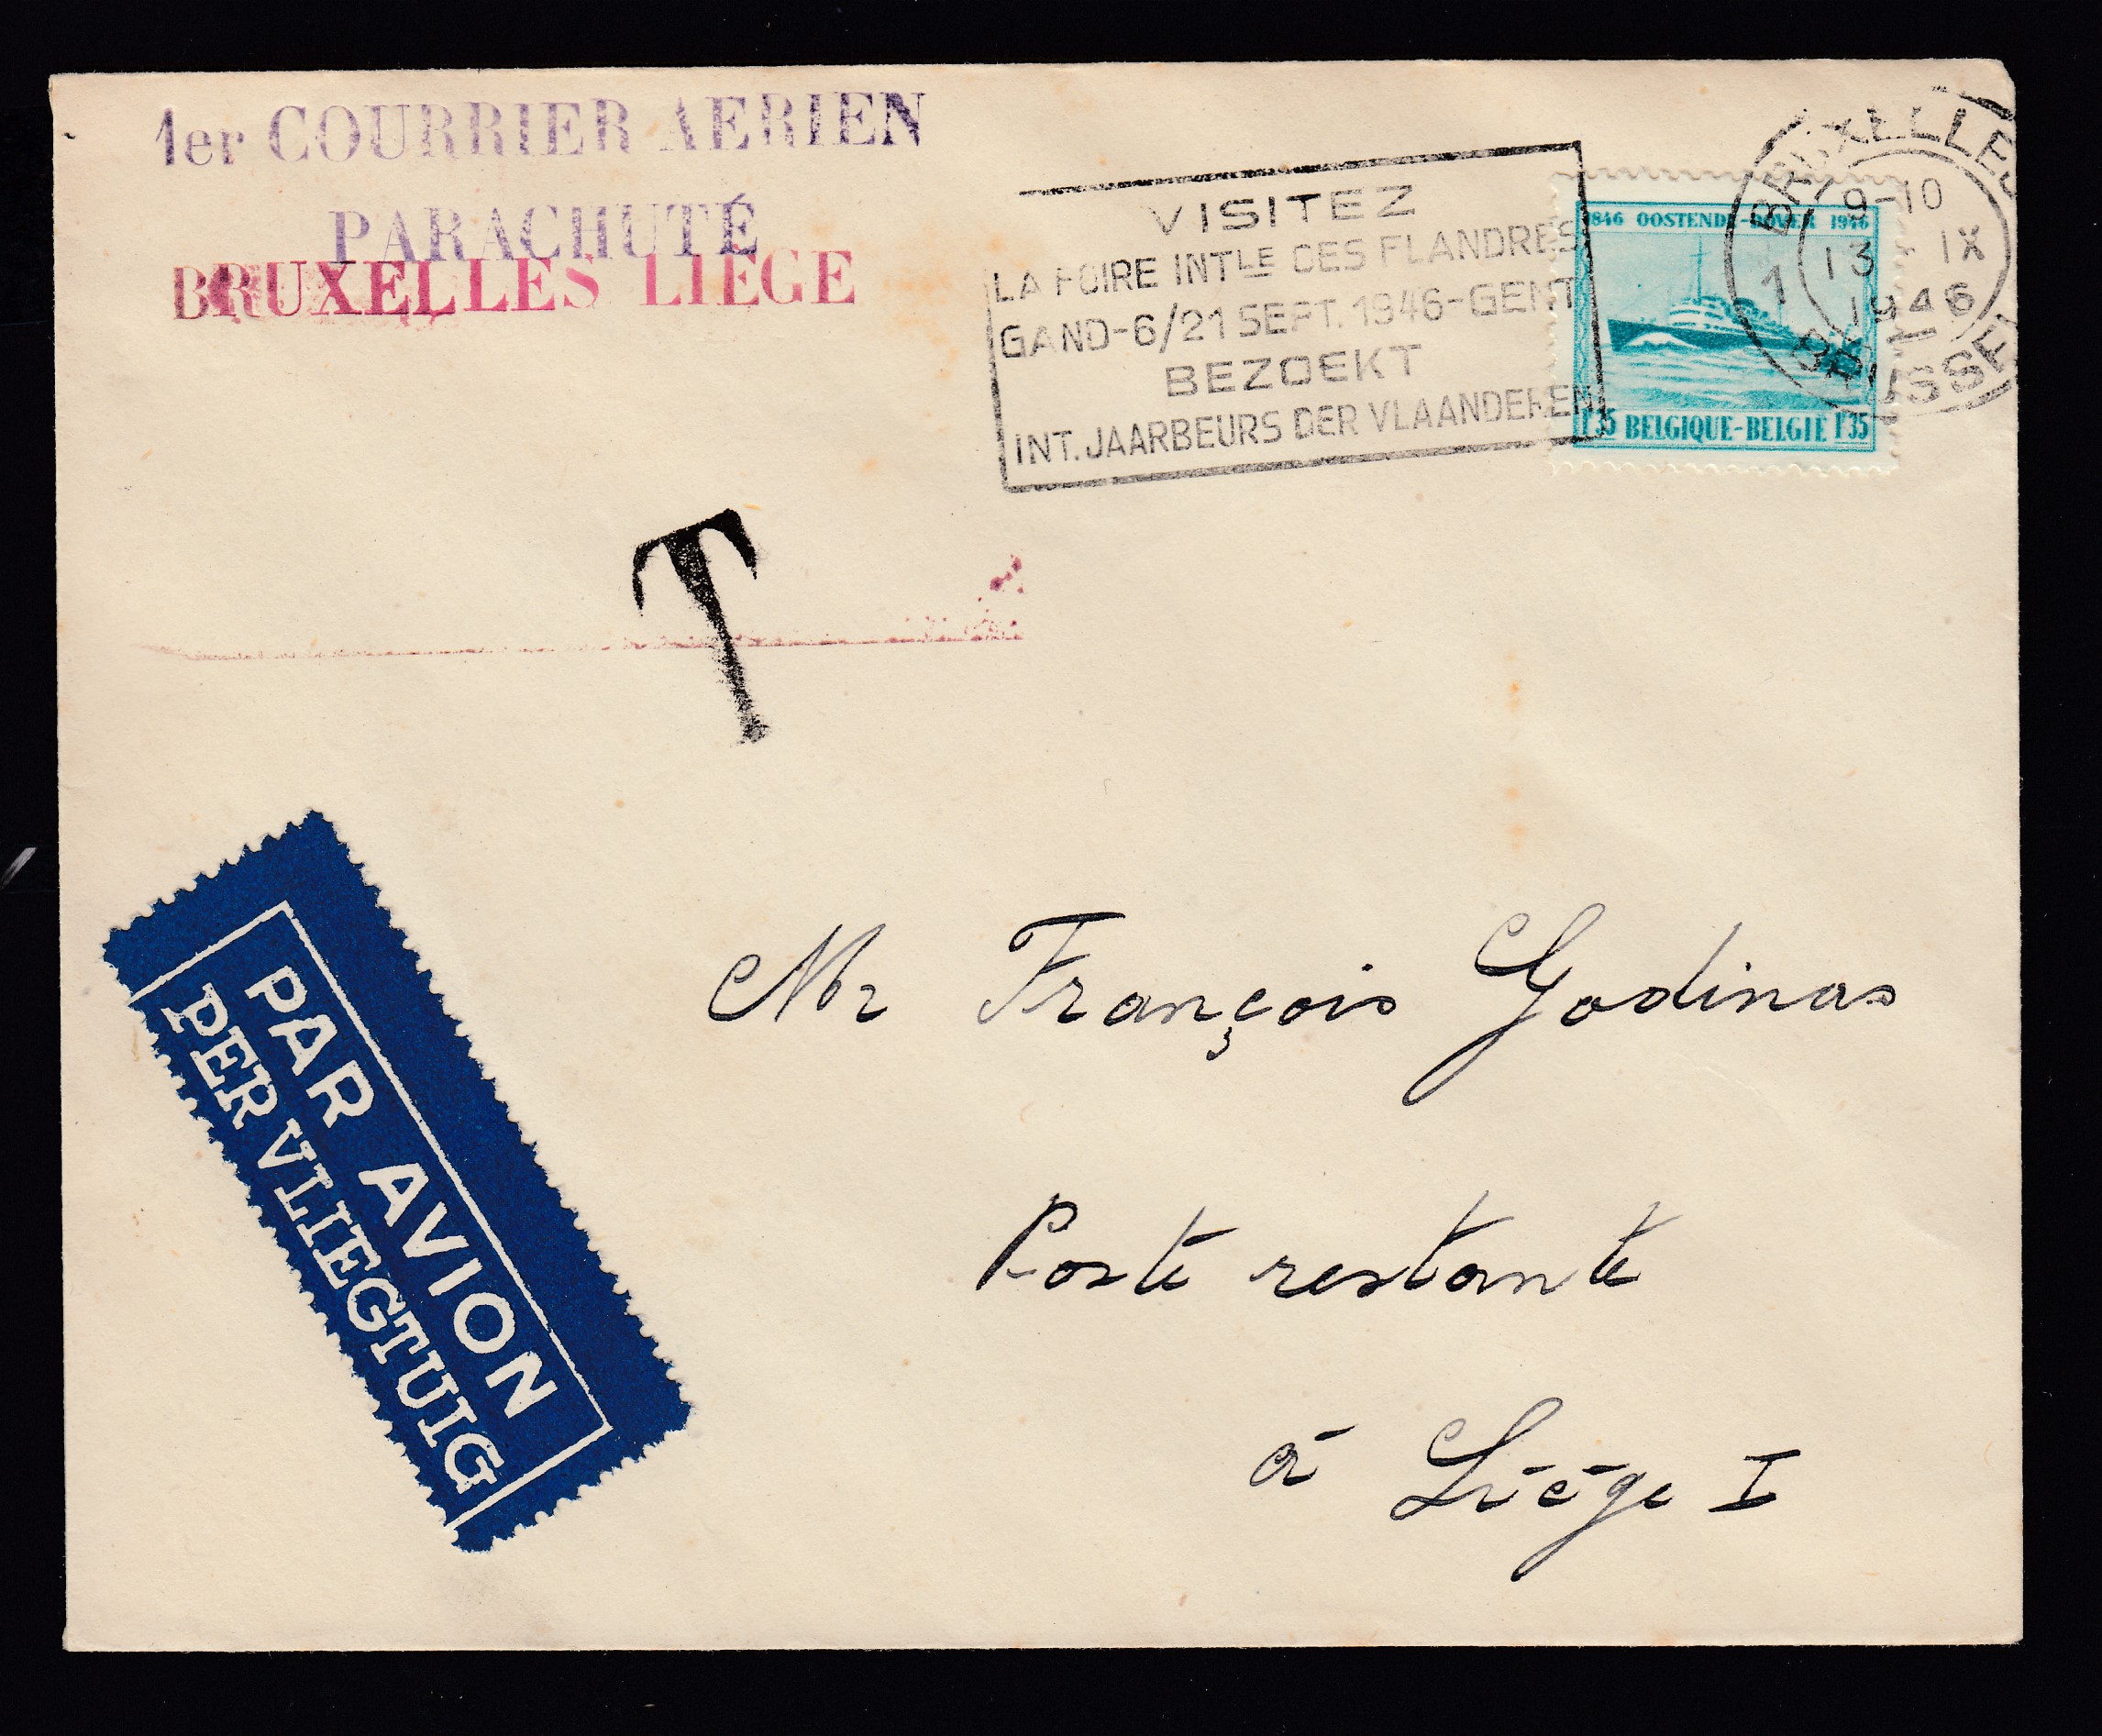 1er COURRIER AERIEN
PARACHUTÉ
BRUXELLES LIÈGE
VISITEZ
LA FOIRE INTLE DES FLANDRES
GAND-6/21 SEPT. 1946-GENT
BEZOEKT
INT. JAARBEURS DER VLAANDEREN
BRUXELLES
9-10
13 IX
1946
1
BRUSSEL
1846 OOSTENDE-DOVER 1946
1F35 BELGIQUE-BELGIË 1F35
T
PAR AVION
PER VLIEGTUIG
Mr François Godinas
Poste restante
à Liège I